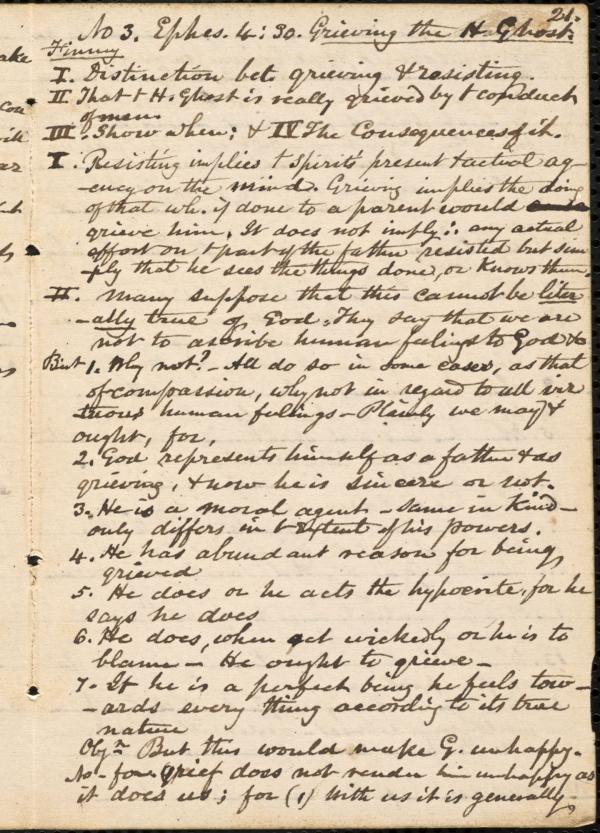 21.
No 3. Ephes. 4:30. Grieving the H. Ghost.
Finney
I. Distinction bet. grieving & resisting.
II. That t H. Ghost is really grieved by t conduct
of men
III. Show when; & IV The Consequences of it.
I. Resisting implies t Spirit's present & actual ag-
-ency on the mind. Grieving implies the doing
of that wh. if done to a parent would
grieve him. It does not imply ∴ any actual
effort on t part of the father resisted but sim
-ply that he sees the things done, or knows them.
II. Many suppose that this cannot be liter
-ally true of God. They say that we are
not to ascribe human feelings to God &c
But 1. Why not? - All do so in some cases, as that
of compassion, why not in regard to all vir
tuous human feelings - Plainly we may &
ought, for,
2. God represents himself as a father & as
grieving, & now he is sincere or not.
3. He is a moral agent - same in kind -
only differs in t extent of his powers.
4. He has abundant reason for being
grieved
5. He does or he acts the hypocrite, for he
says he does
6. He does, when act wickedly or he is to
blame - He ought to grieve -
7. If he is a perfect being he feels tow-
-ards every thing according to its true
nature
Obj.n But this would make G. unhappy.
No - for grief does not render him unhappy as
it does us; for (1) With us it is generally